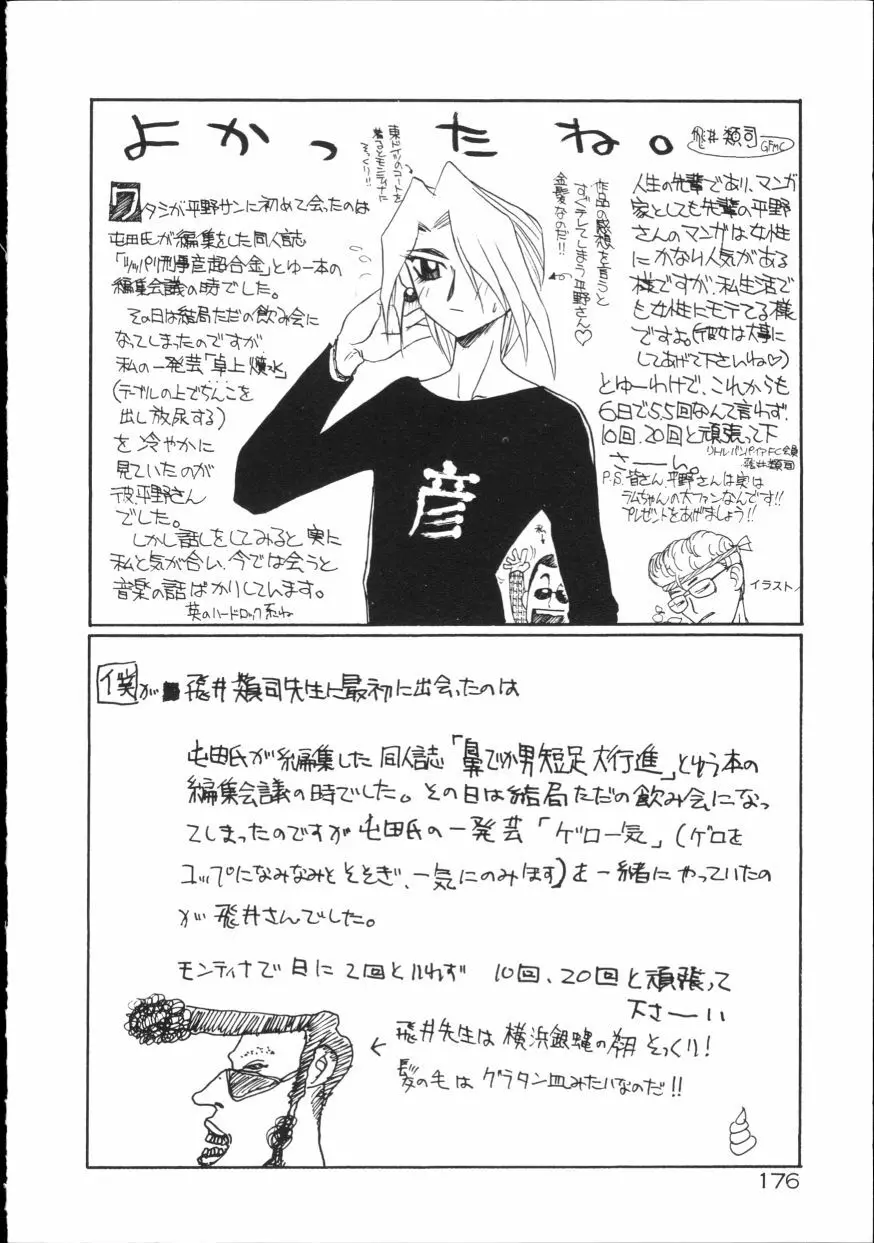 よかったね。
飛井類司
GFMC
東ドイツのコートを
着るとモンティナた
そっくり!!
ワタシが平野サンに初めて会ったのは
屯田氏が編集をした同人誌
「ツッパリ刑事彦超合金」とゆー本の
編集会議の時でした。
その日は結局ただの飲み会に
なってしまったのですが
私の一発芸「卓上噴水」
(テーブルの上でちんこを
出し放尿する)
を冷やかに
見ていたのが
彼、平野さん
でした。
しかし話しをしてみると実に
私と気が合い、今では会うと
音楽の話ばかりしています。
英のハードロック系ね
作品の感想を言うと
すぐテレてしまう平野さん♡
金髪なのだ!!
彦
私
人生の先輩であり、マンガ
家としても先輩の平野
さんのマンガは女性
にかなり人気がある
様ですが、私生活で
も女性にモテてる様
ですね(彼女は大事に
してあげて下さいね♡)
とゆーわけで、これからも
6日で55回なんて言わず、
10回、20回と頑張って下
さーい。
リトルバンパイアFC会員
飛井類司
P.S. 皆さん、平野さんは実は
ラムちゃんの大ファンなんです!!
プレゼントをあげましょう!!
イラスト
僕が飛井類司先生に最初に出会ったのは
屯田氏が編集した同人誌「鼻でか男短足大行進」とゆう本の
編集会議の時でした。その日は結局ただの飲み会になっ
てしまったのですが屯田氏の一発芸「ゲロ一気」(ゲロを
コップになみなみとそそぎ、一気にのみほす)を一緒にやっていたの
が飛井さんでした。
モンティナで日に2回といわず 10回、20回と頑張って
下さーい
飛井先生は横浜銀蝿の翔そっくり!
髪の毛はグラタン皿みたいなのだ!!
176